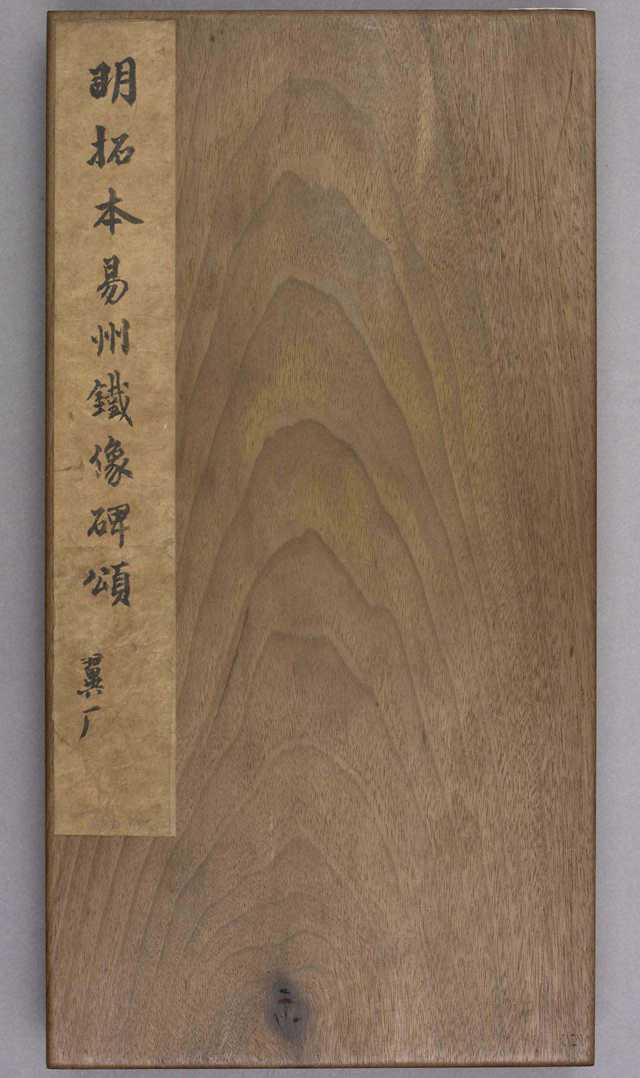 明拓本易州鐵像碑頌
翼厂